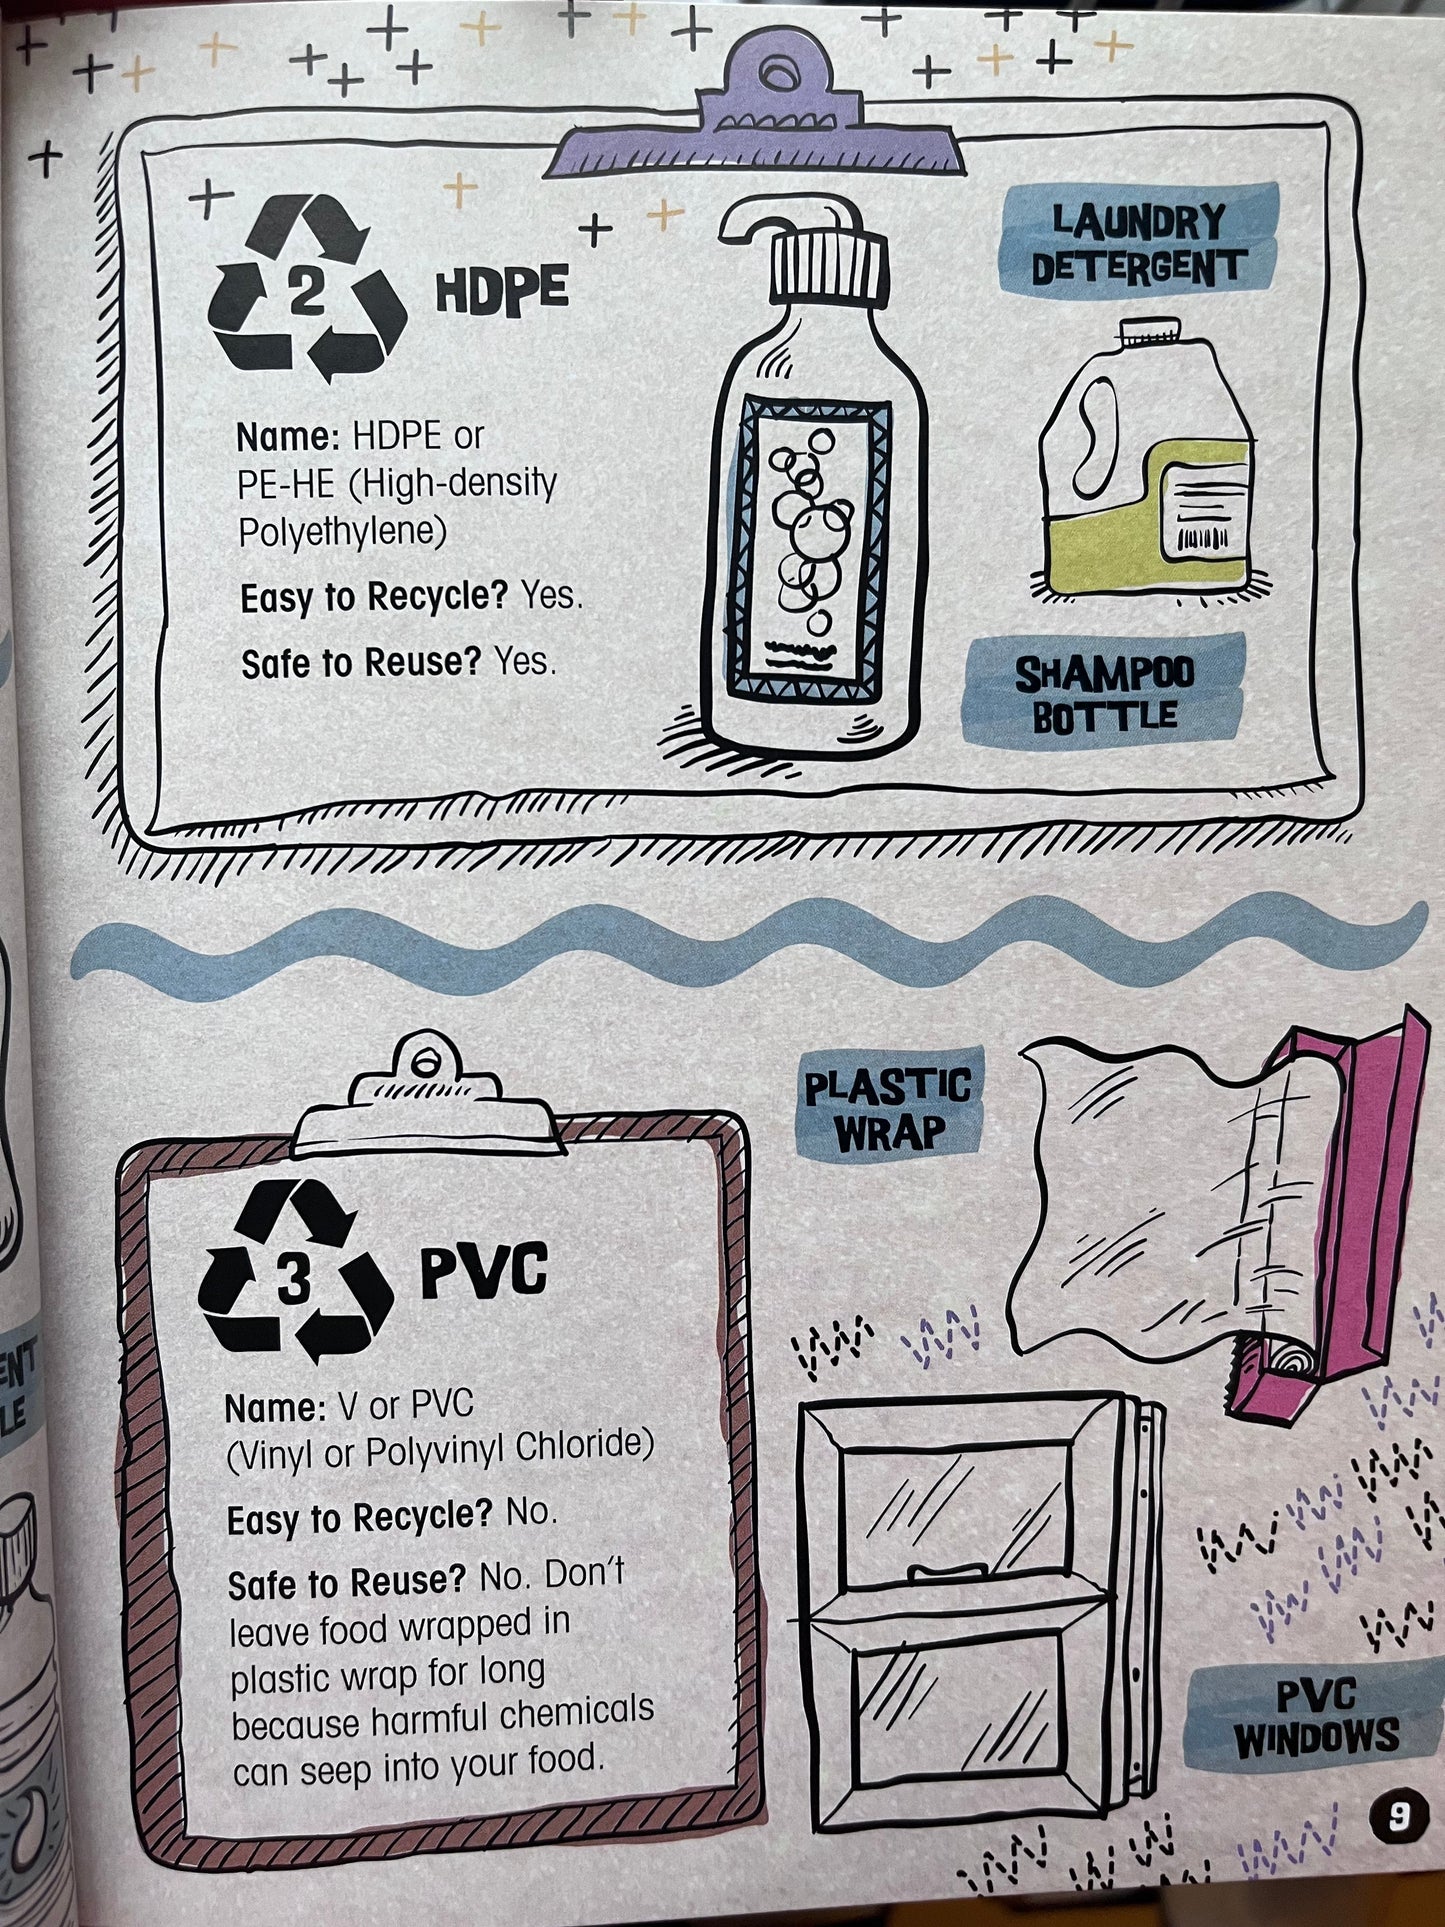 2
HDPE
Name: HDPE or
PE-HE (High-density
Polyethylene)
Easy to Recycle? Yes.
Safe to Reuse? Yes.
LAUNDRY
DETERGENT
SHAMPOO
BOTTLE
PLASTIC
WRAP
3
PVC
Name: V or PVC
(Vinyl or Polyvinyl Chloride)
Easy to Recycle? No.
Safe to Reuse? No. Don't
leave food wrapped in
plastic wrap for long
because harmful chemicals
can seep into your food.
PVC
WINDOWS
9